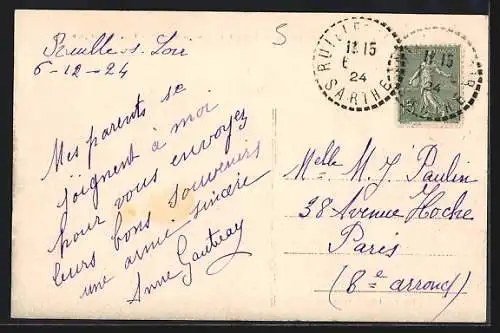 Ruillé-s-Loir
6-12-24
Mes parents se
joignent à moi
pour vous envoyer
leurs bons souvenirs
une amie sincère
Anne Gautray
5
RUILLE
11 15
6
24
SARTHE
11 15
24
SARTHE
Melle M. J. Paulin
38 Avenue Hoche
Paris
(8e arrond)